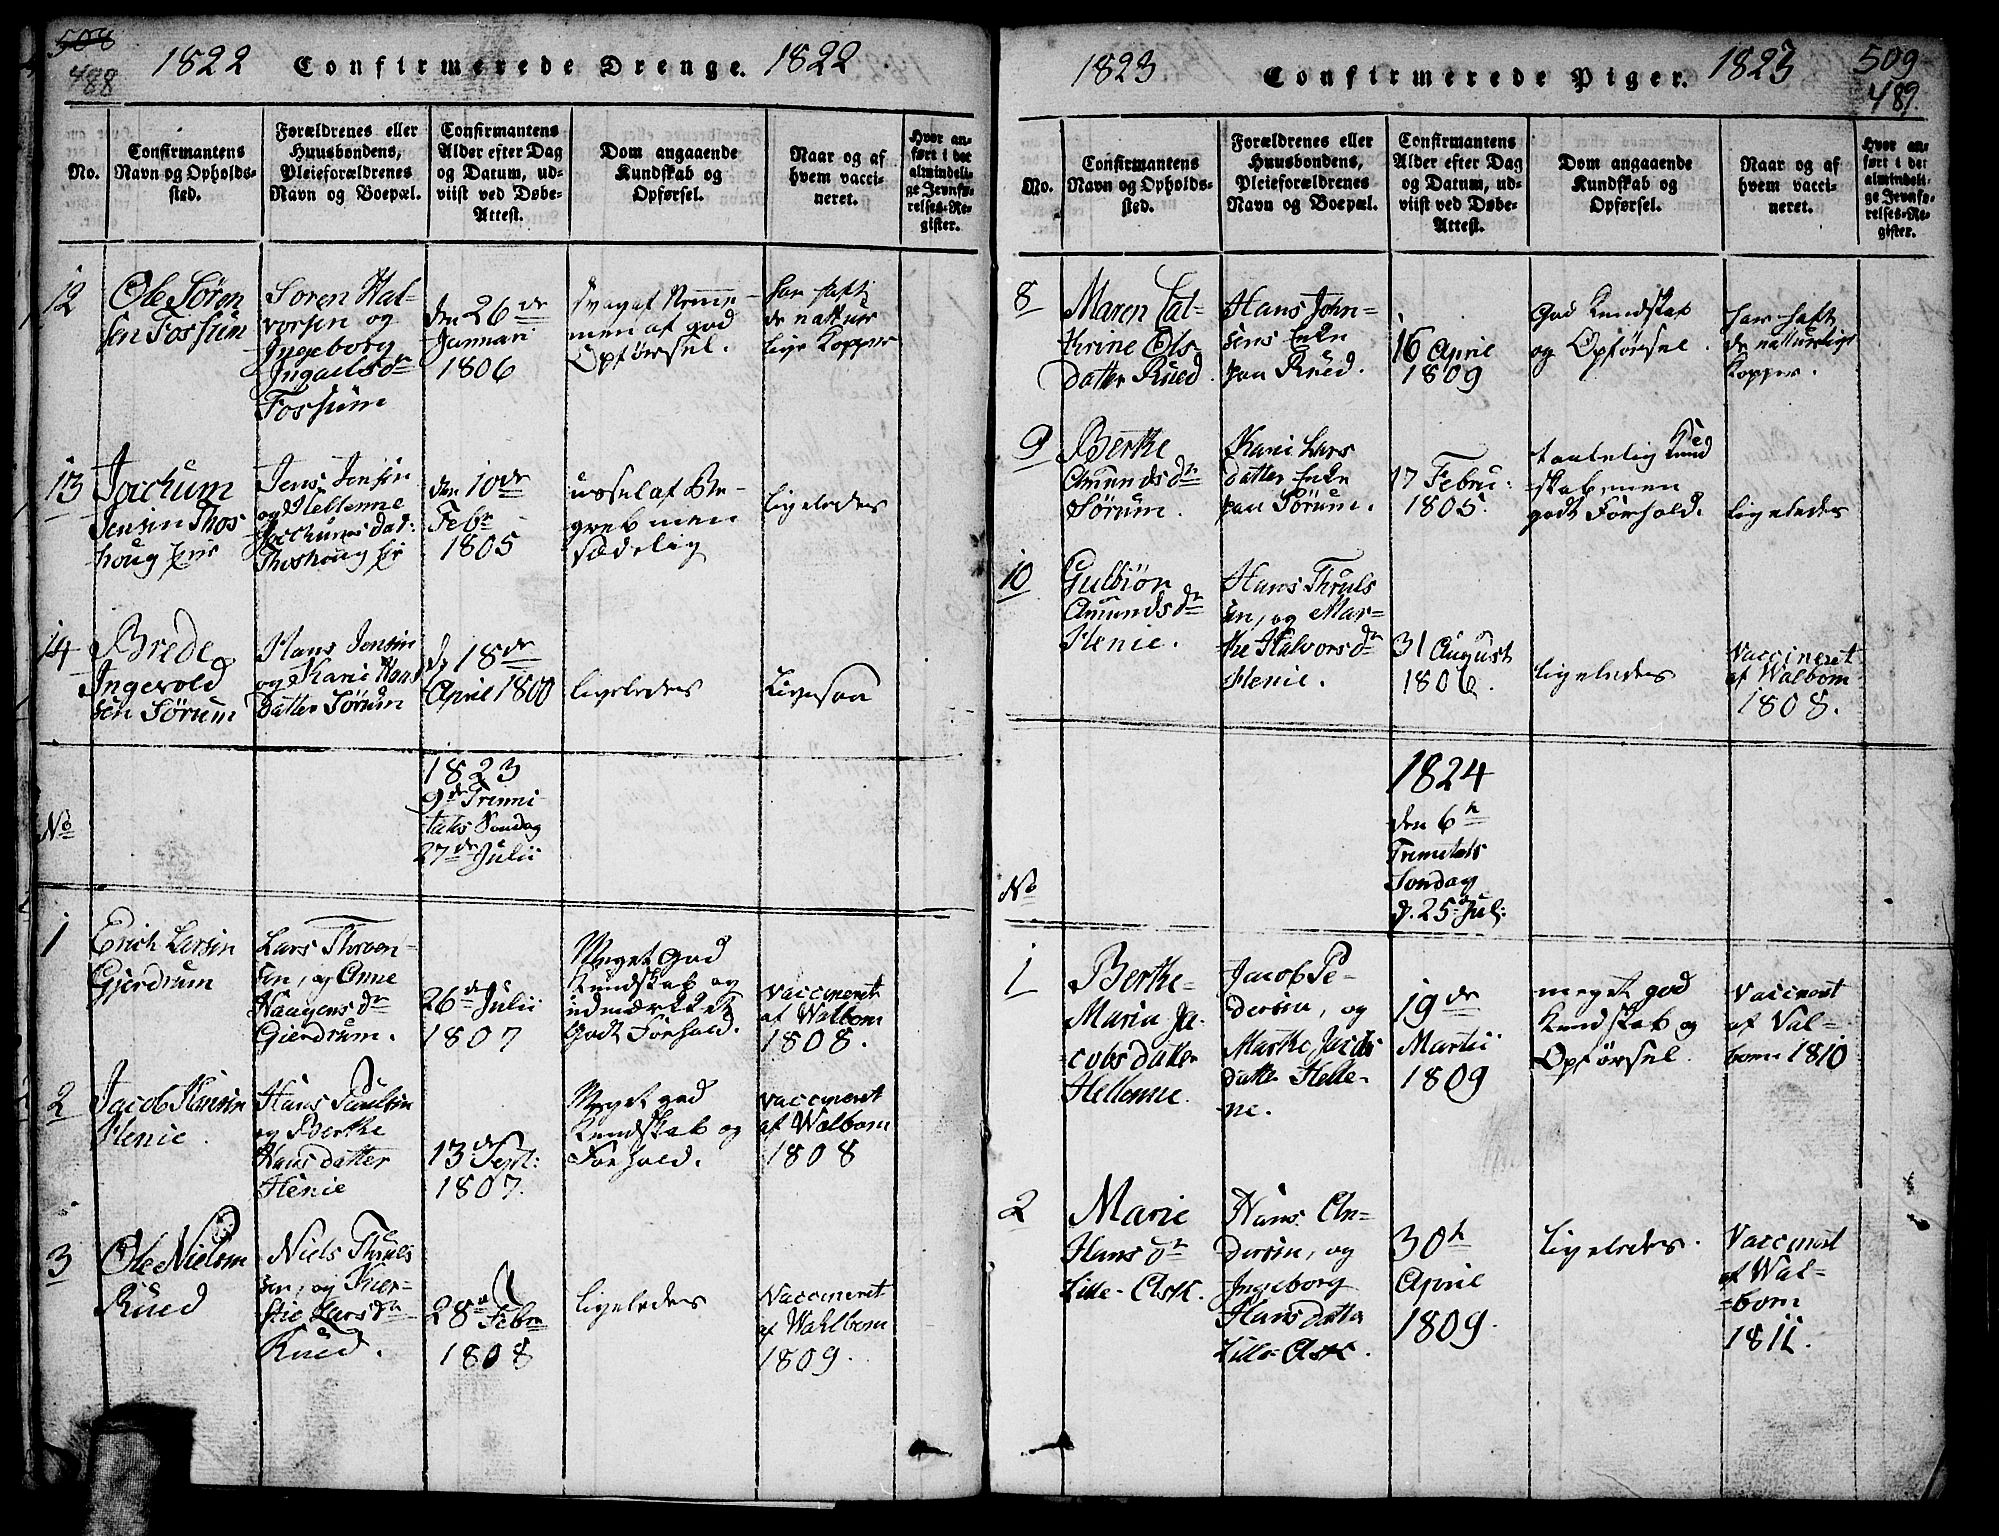 508
488
1822 Confirmerede Drenge. 1822
No.
Confirmantens
Navn og Opholds-
sted.
Forældrenes eller
Huusbondens,
Pleieforældrenes
Navn og Boepæl.
Confirmantens
Alder efter Dag
og Datum, ud-
viist ved Døbe-
Attest.
Dom angaaende
Kundskab og
Opførsel.
Naar og af
hvem vacci-
neret.
Hvor an-
ført i det
almindeli-
ge Jevnfø-
relses-Re-
gister.
12
Ole Søren
sen Fossum
Soren Hal-
vorsen og
Ingeborg
Fossum
den 26de
Januari
1806
svag af Nemme
men af god
Opførsel.
har haft
de nattur
lige Kopper
13
Jochum
Jensen Thos
houg Eie
Jens Jensen
og Hellenne
Jochums dat:
Thoshoug Eie
den 10de
Febr
1805
ussel af Be-
greb men
sædelig
ligeledes
14
Brede
Ingevold
sen Sørum
Hans Jensen
og Kari Hans
datter Sørum
d. 18de
April 1800
ligeledes
Ligesaa
No
1823
9de Trini-
tatis Søndag
27de Julii
1
Erich Larsen
Gjerdrum
Lars Throen-
sen, og Anne
Haagens dr
Gierdrum.
26d Julii
1807
Meget God
Kundskab og
udmærkket
Godt Forhold.
vaccineret
af Walbom
1808.
2
Jacob Hansen
Henie.
Hans Paulsen
og Berthe
Hans datter
Henie
13de Sept:
1807.
Meget god
Kundskab og
Forhold.
vaccineret
af Walbom
1808
3
Ole Nielsen
Rued
Niels Thruls
sen, og Kier-
stie Lars dr
Rued.
28d Febr
1808
ligeledes
Vaccineret
af Wahlbom
1809.
1823 Confirmerede Piger. 1823
509
489.
No.
Confirmantens
Navn og Opholds-
sted.
Forældrenes eller
Huusbondens,
Pleieforældrenes
Navn og Boepæl.
Confirmantens
Alder efter Dag
og Datum, ud-
viist ved Døbe-
Attest.
Dom angaaende
Kundskab og
Opførsel.
Naar og af
hvem vacci-
neret.
Hvor an-
ført i det
almindeli-
ge Jevnfø-
relses-Re-
gister.
8
Maren Cat-
hrine Ols-
datter Rued.
Hans John-
sens Enke
paa Rued.
16 April
1809
God Kundskab
og Opførsel.
har haft
de naturlige
Kopper.
9
Berthe
Amunds dr
Sørum.
Kari Lars
datter Enke
paa Sørum.
17 Febru:
1805.
taalelig Kund
-skab, men
godt Forhold.
ligeledes
10
Gulbiør
Amunds dr
Henie.
Hans Thruls
sen, og Mar-
the Halvors dr
Henie.
31 August
1806.
ligeledes
Vaccineret
af Walbom
1808.
No
1824
den 6te
Trinitatis
Søndag
d. 25de Jul:
1
Berthe
Maria Ja-
cobs datter
Hellenne.
Jacob Pe-
dersen, og
Marthe Jacobs
datter Helle-
ne.
19de
Martii
1809
meget god
Kundskab og
Opførsel.
Vaccineret
af Val-
bom 1810
2
Marie
Hans dr
Lille-Ask.
Hans An-
dersen, og
Ingeborg
Hans datter
Lille-Ask.
30te
April
1809.
ligeledes.
Vaccineret
af Wal-
-bom
1811.